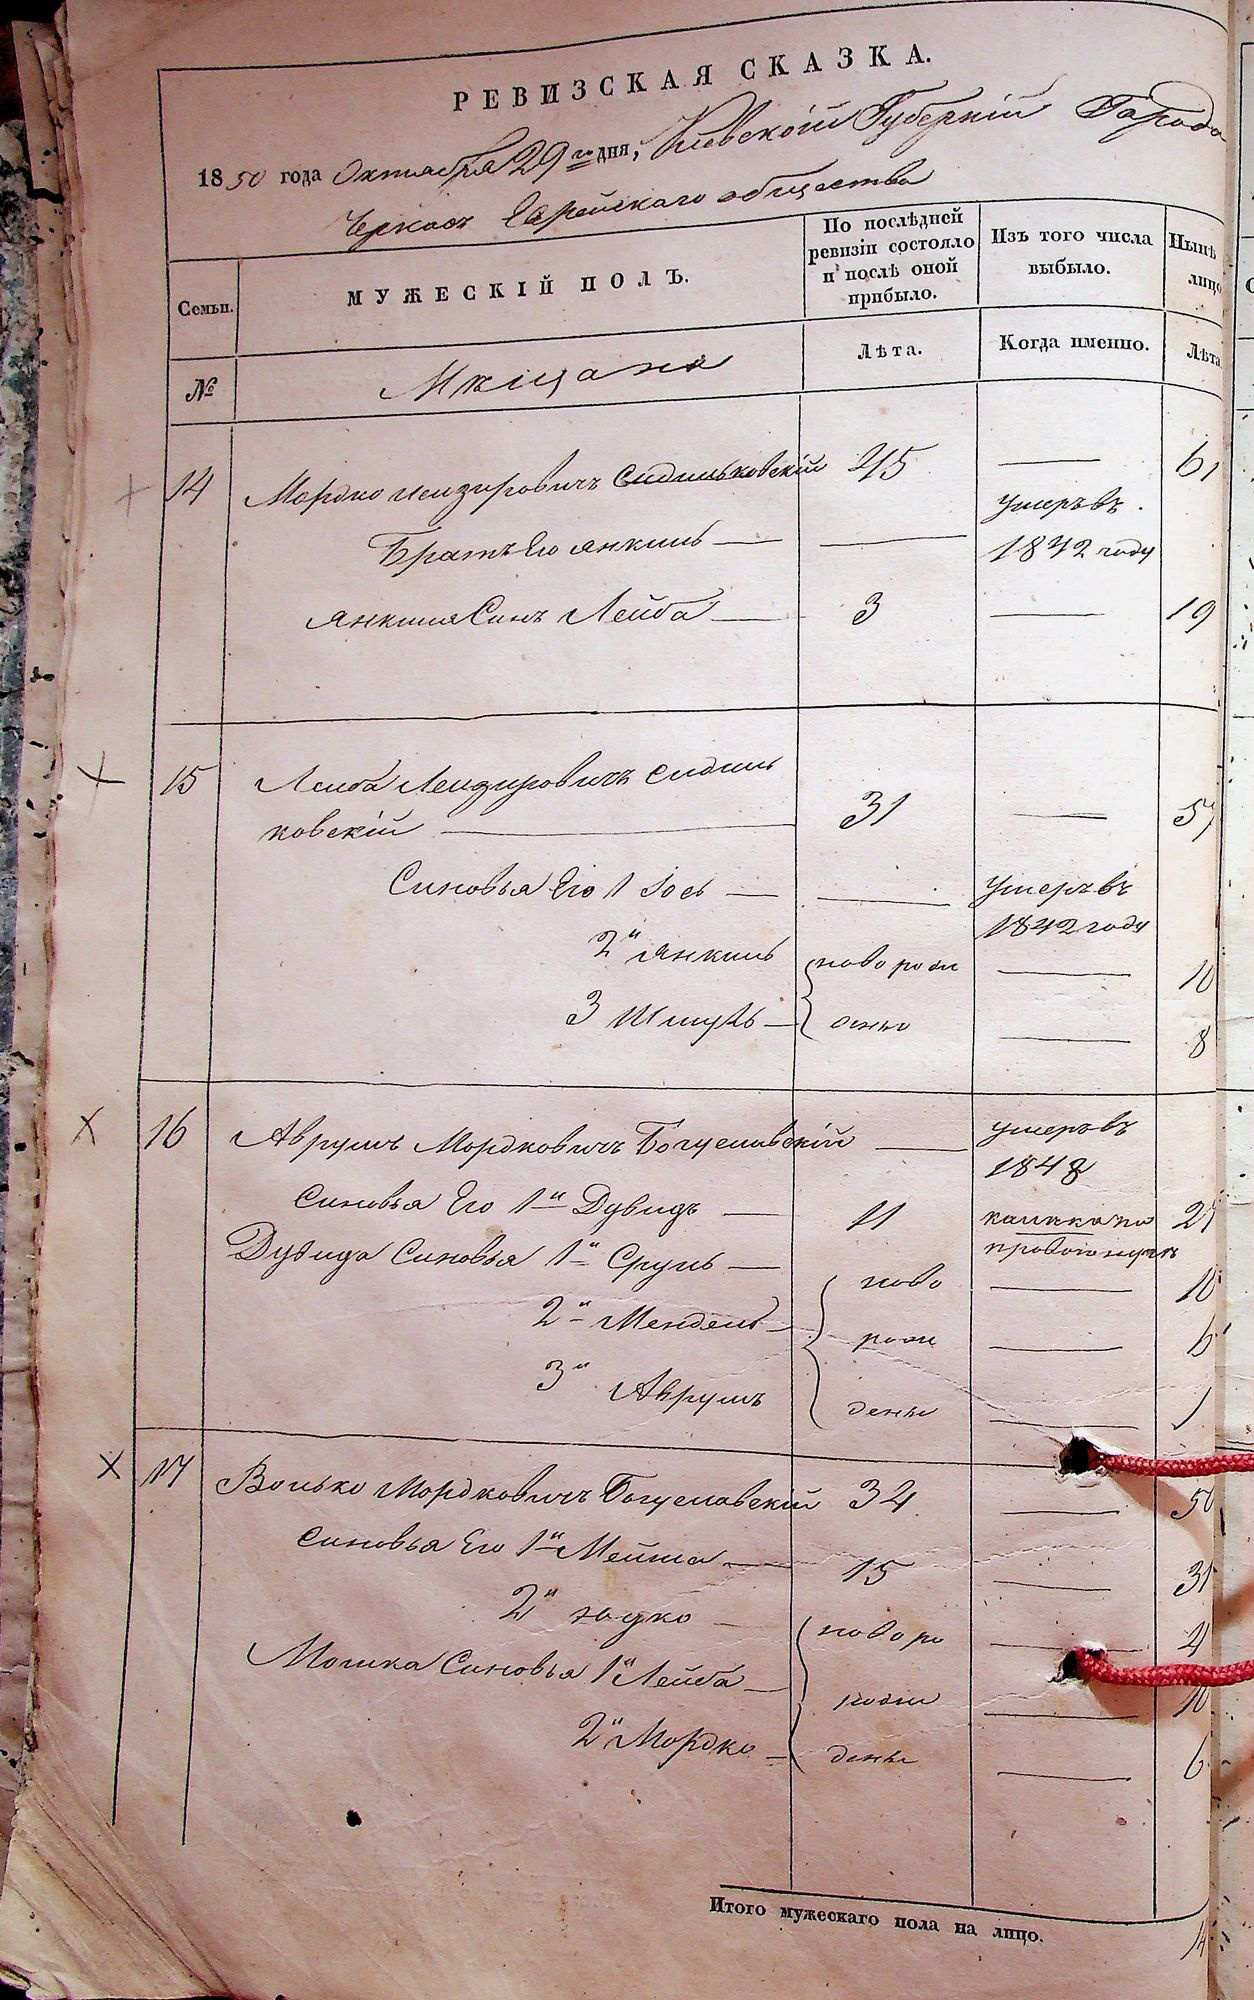 РЕВИЗСКАЯ СКАЗКА.
1850 года Октября 29го дня, Киевской Губерніи Города
Черкасъ Еврейскаго общества
Семьи.
МУЖЕСКІЙ ПОЛЪ.
По послѣдней ревизіи состояло и послѣ оной прибыло.
Изъ того числа выбыло.
Нынѣ лицо
№
Мѣщане
Лѣта.
Когда именно.
Лѣта
14 Мордко Лейзеровичъ 45 — 61
Братъ Его Янкель — — умеръ въ 1842 году
Янкеля Синъ Лейба — 3 — 19
15 Лейба Лейзеровичъ
ковскій — 31 — 5
Синовья Его 1 Іось — — умеръ въ 1842 году
2й Янкель новорож — 10
3 Шмуль — деные — 8
16 Аврумъ Мордковичъ Богуславскій — умеръ въ 1848
Синовья Его 1й Дувидъ — 11 2
Дувида Синовья 1й Сруль — ново — 10
2й Мендель — рож — 6
3й Аврумъ дены — 1
17 Волько Мордковичъ Богуславскій 34 — 50
Синовья Его 1й — 15 — 31
2й новоро — 4
Мошка Синовья 1й Лейба — — 10
2й Мордко — дены — 6
Итого мужескаго пола на лицо. 14